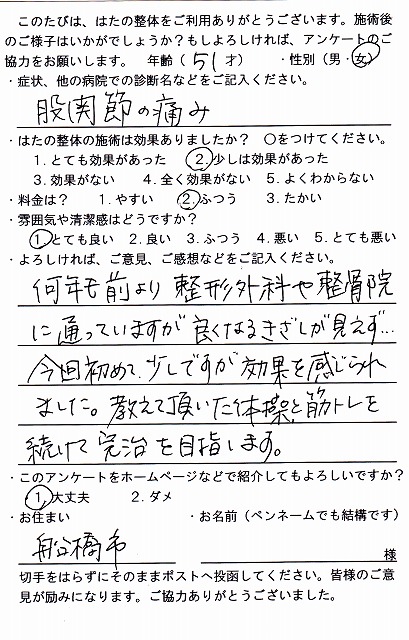 このたびは、はたの整体をご利用ありがとうございます。施術後
のご様子はいかがでしょうか？もしよろしければ、アンケートのご
協力をお願いします。 年齢（ 51 才） ・性別（男・女）
・症状、他の病院での診断名などをご記入ください。
股関節の痛み
・はたの整体の施術は効果ありましたか？ ○をつけてください。
1.とても効果があった 2.少しは効果があった
3.効果がない 4.全く効果がない 5.よくわからない
・料金は？ 1.やすい 2.ふつう 3.たかい
・雰囲気や清潔感はどうですか？
1.とても良い 2.良い 3.ふつう 4.悪い 5.とても悪い
・よろしければ、ご意見、ご感想などをご記入ください。
何年も前より整形外科や整骨院
に通っていますが良くなるきざしが見えず…
今回初めて、少しですが効果を感じられ
ました。教えて頂いた体操と筋トレを
続けて完治を目指します。
・このアンケートをホームページなどで紹介してもよろしいですか？
1.大丈夫 2.ダメ
・お住まい ・お名前（ペンネームでも結構です）
船橋市 様
切手をはらずにそのままポストへ投函してください。皆様のご意
見が励みになります。ご協力ありがとうございました。